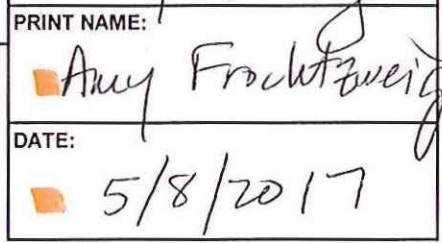 PRINT NAME:
Amy Frochtzweig
DATE:
5/8/2017